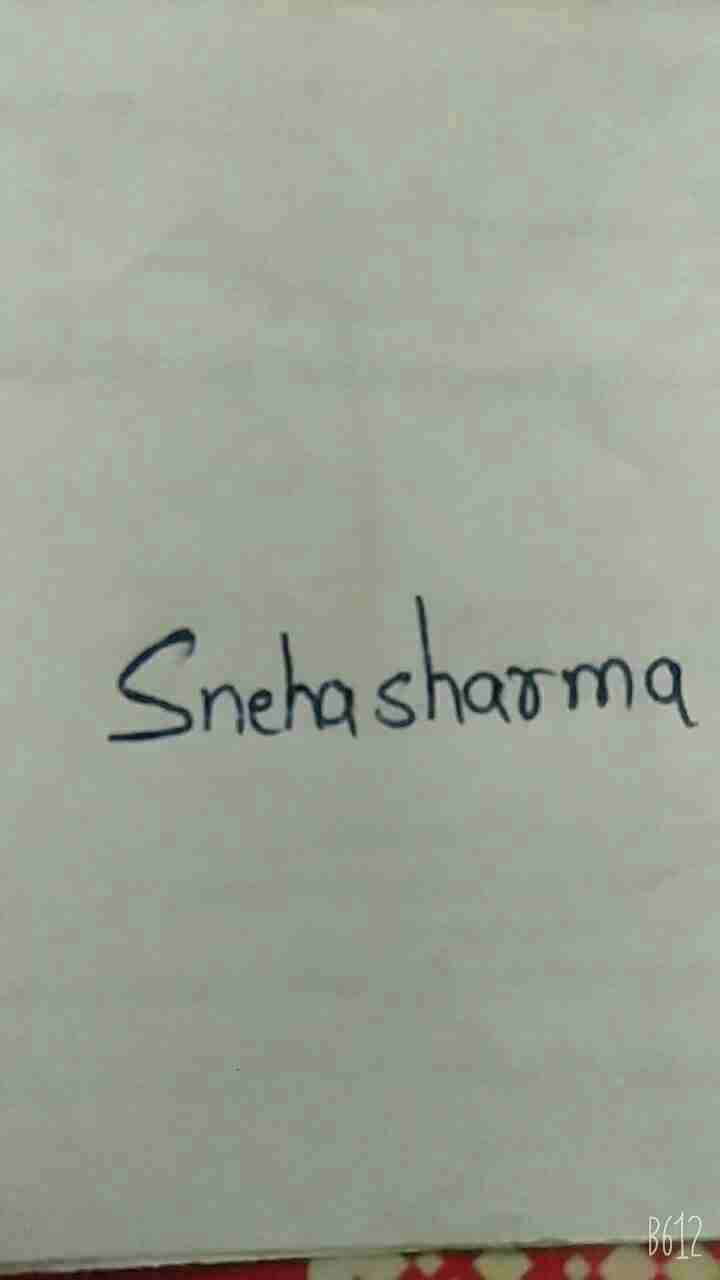 Sneha sharma
B612